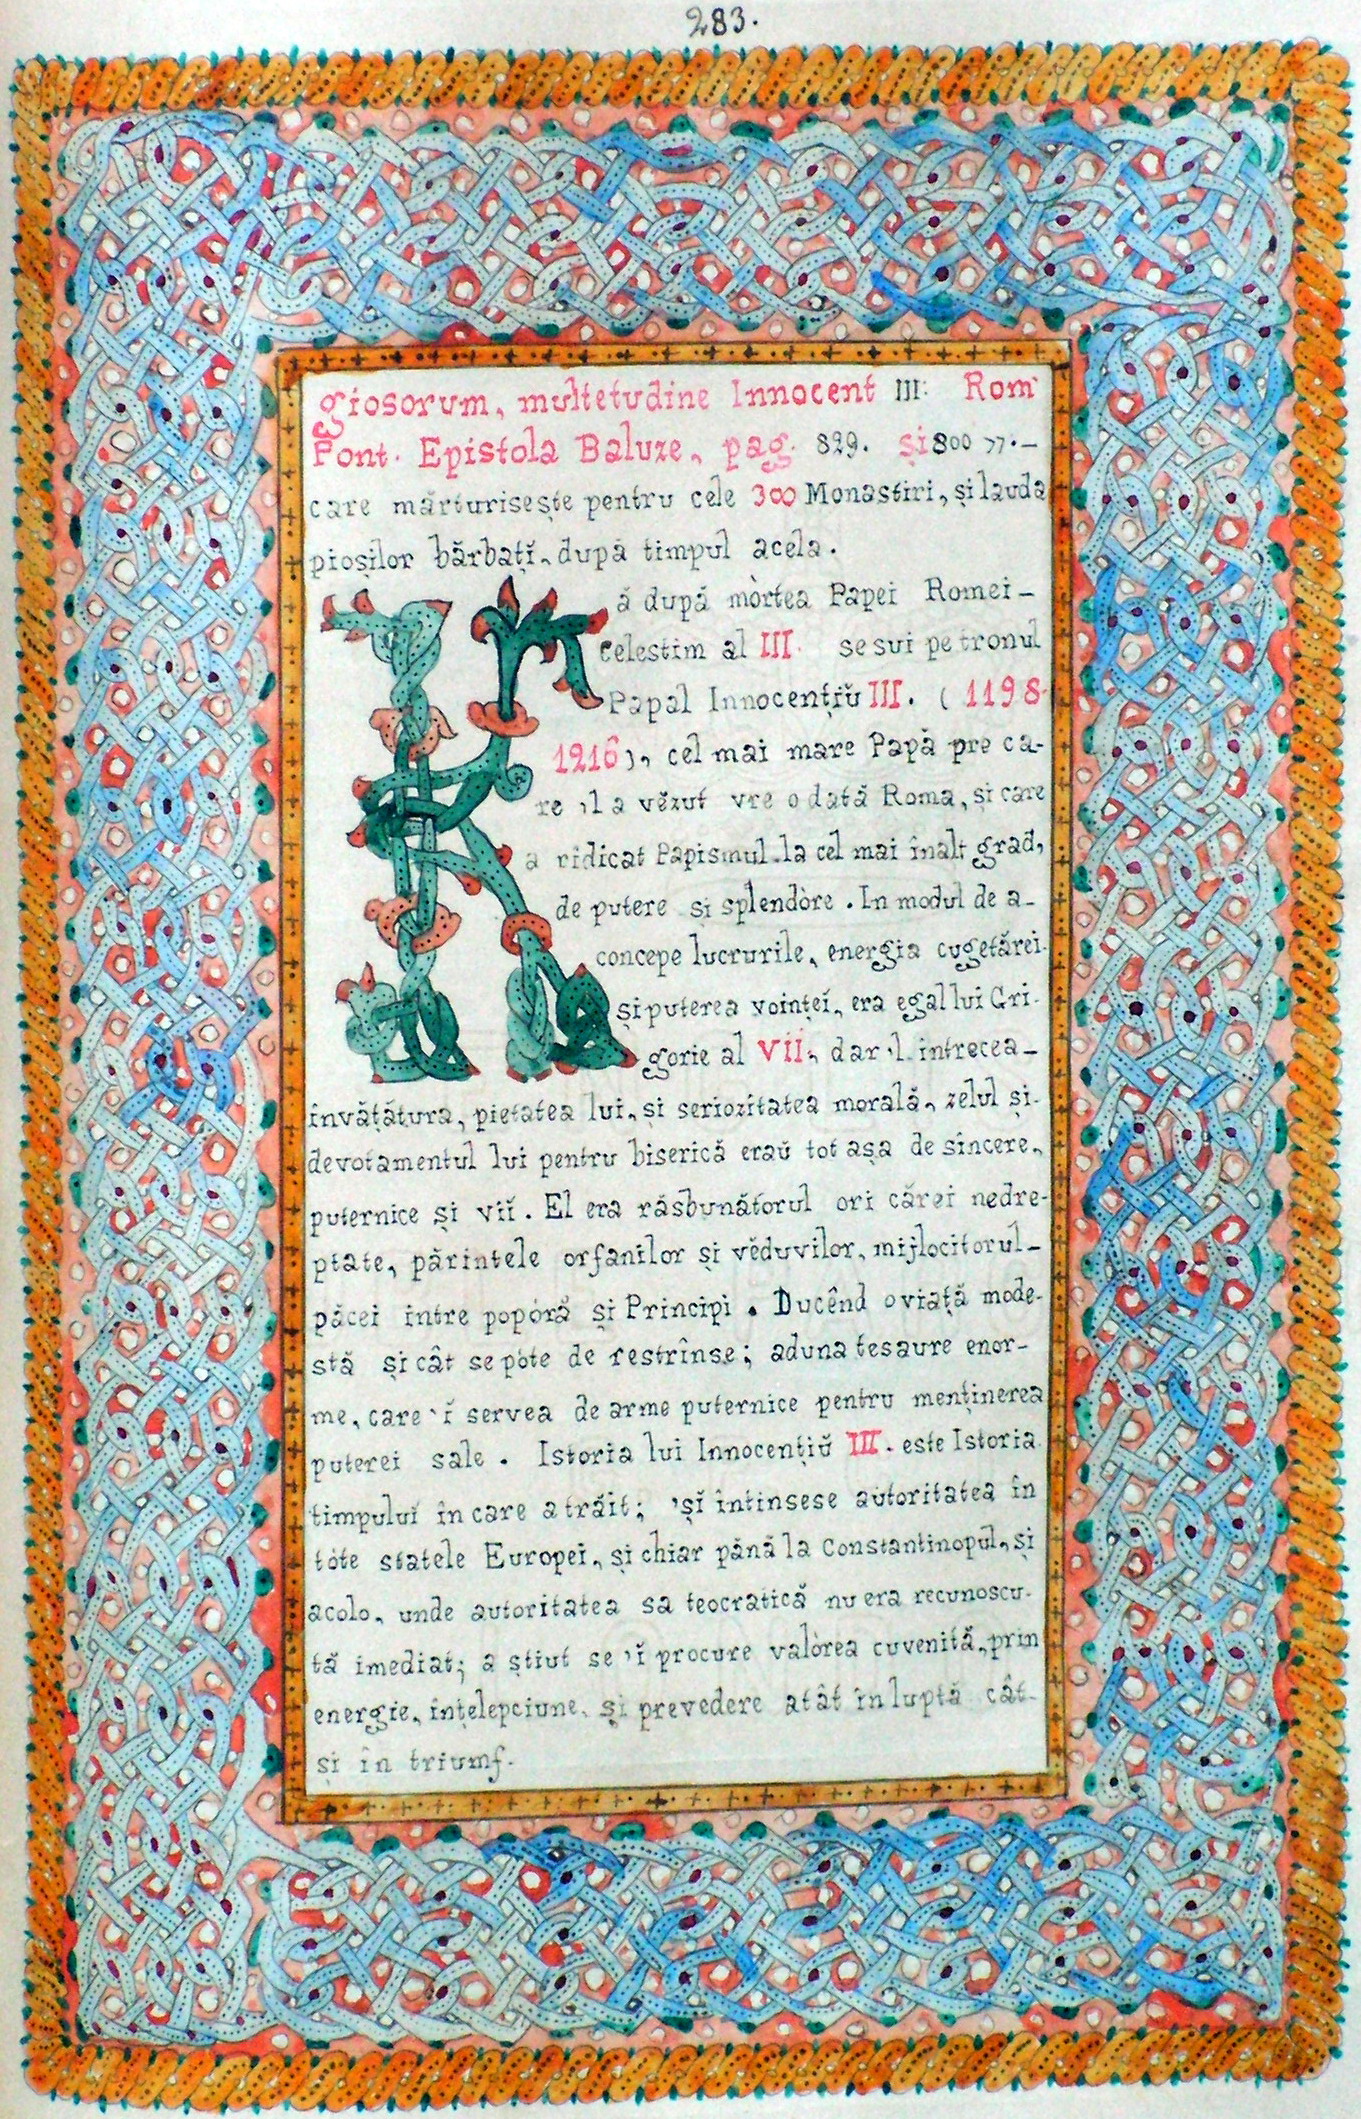 283.
giosorum, multetudine Innocent III: Rom
Pont. Epistola Baluze, pag. 829. și 800 77.–
care mărturisește pentru cele 300 Monastiri, și lauda
pioșilor bărbațĭ, după timpul acela.
Ră după mòrtea Papei Romei –
Celestim al III. se sui pe tronul
Papal Innocențiŭ III. ( 1198-
1216), cel mai mare Papă pre ca-
re 'l a vĕzut vre o dată Roma, și care
a ridicat Papismul la cel mai înalt grad,
de putere și splendòre. In modul de a-
concepe lucrurile, energia cugetărei.
și puterea voințeĭ, era egal lui Gri-
gorie al VII, dar 'l intrecea –
învățătura, pietatea lui, și seriozitatea morală, zelul și-
devotamentul lui pentru biserică eraŭ tot așa de sincere,
puternice și viĭ. El era răsbunătorul ori cărei nedre-
ptate, părintele orfanilor și vĕduvilor, mijlocitorul –
păcei intre popòră și Principi. Ducênd o viață mode-
stă și cât se pòte de restrînse; aduna tesaure enor-
me, care 'ĭ servea de arme puternice pentru menținerea
puterei sale. Istoria lui Innocențiŭ III. este Istoria
timpuluĭ în care a trăit; 'șĭ întinsese autoritatea în
tòte statele Europei, și chiar până la Constantinopul, și
acolo, unde autoritatea sa teocratică nu era recunoscu-
tă imediat; a știut se 'ĭ procure valòrea cuvenită, prin
energie, ințelepciune, și prevedere atât în luptă cât-
și în triumf.